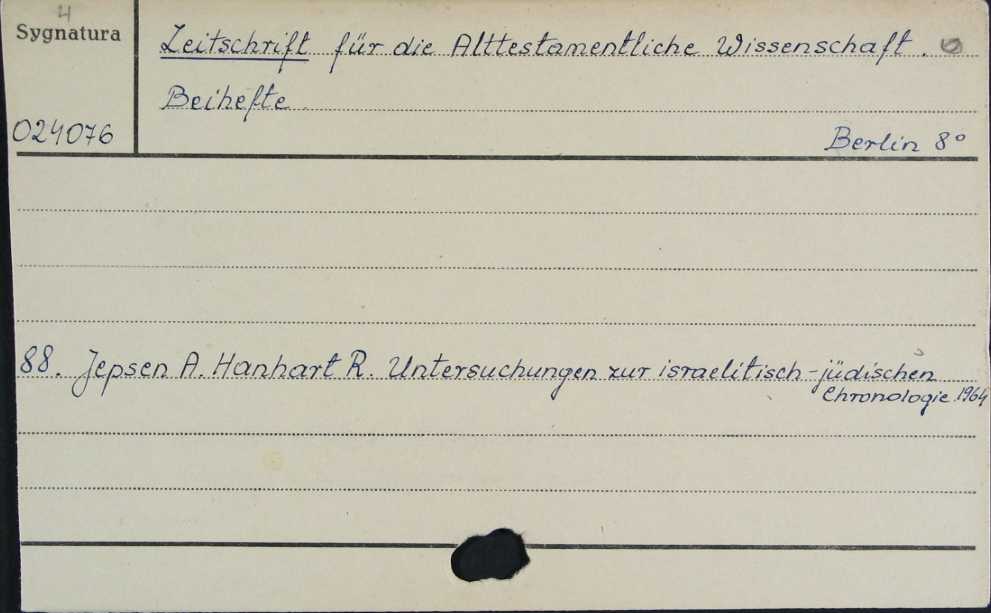 4
Sygnatura
Zeitschrift für die Alttestamentliche Wissenschaft.
Beihefte
024076
Berlin 8°
88. Jepsen A. Hanhart R. Untersuchungen zur israelitisch-jüdischen
Chronologie 1964